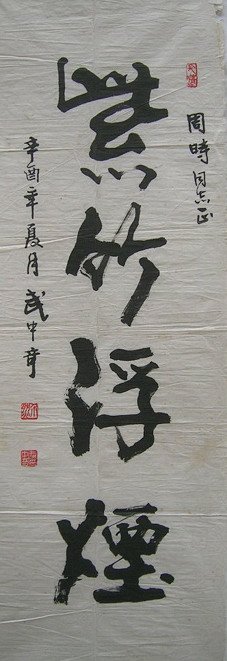 周時同志正
紫竹浮煙
辛酉年夏月 武中奇